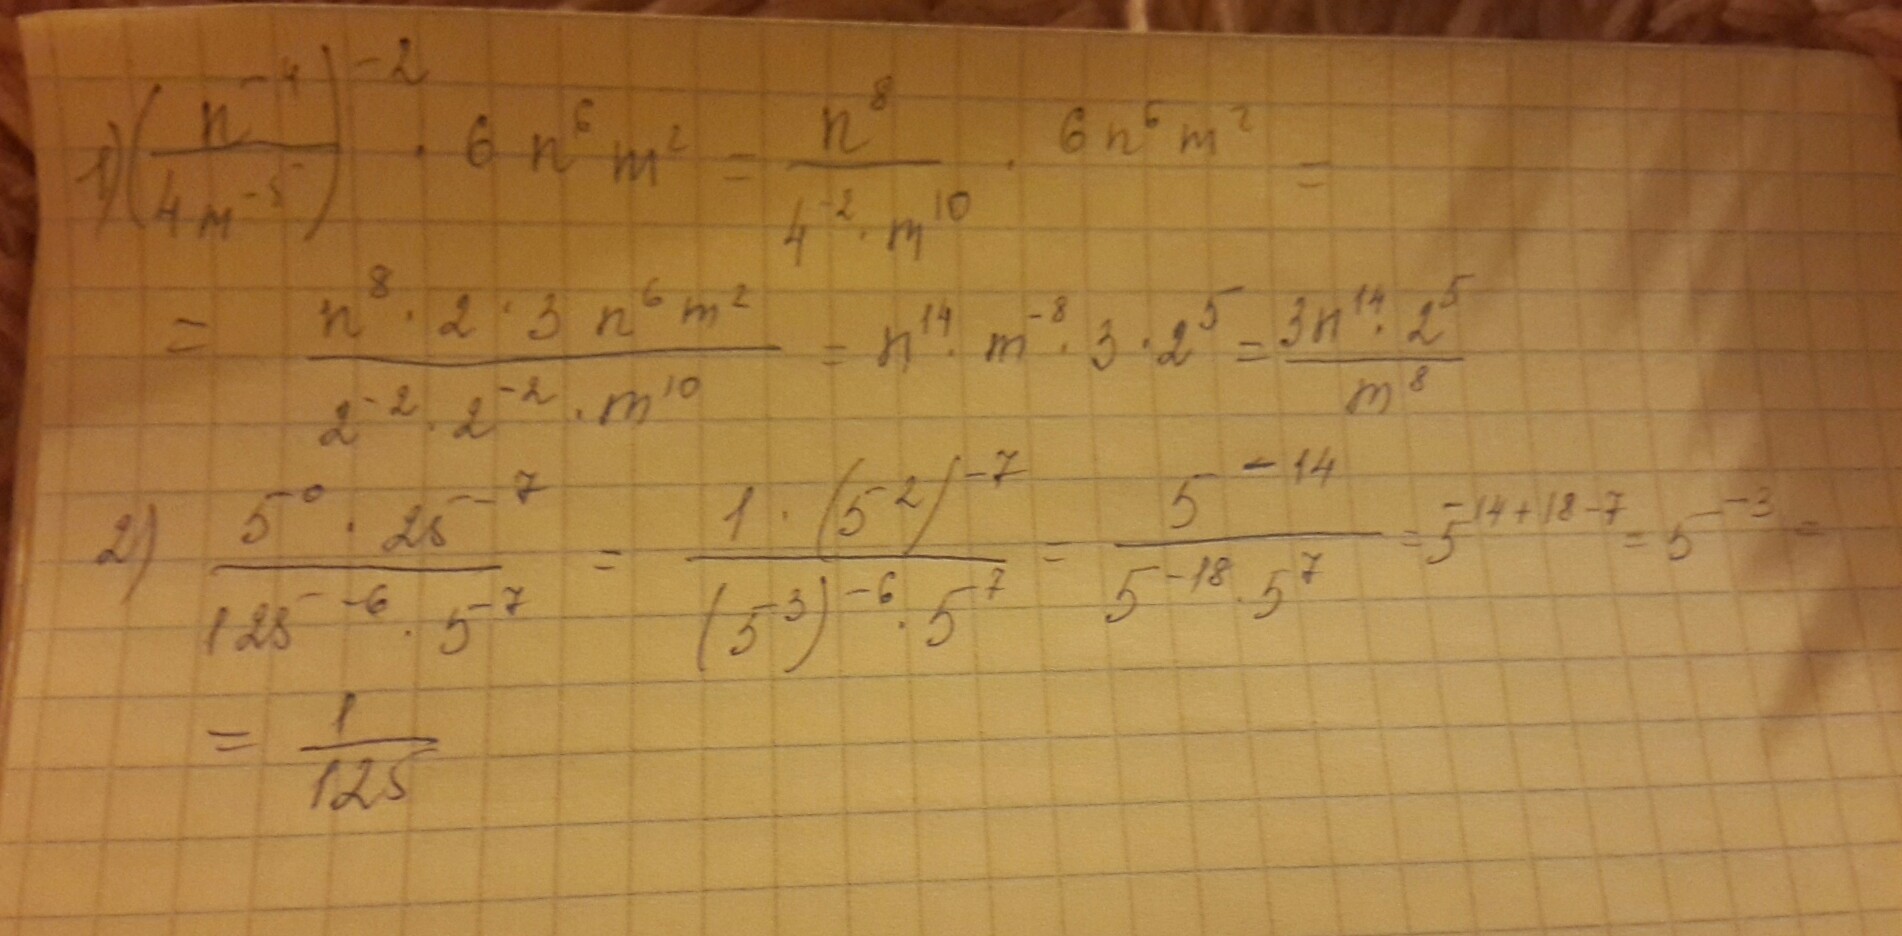 1) (n^-4 / 4m^-5)^-2 · 6 n^6 m^2 = n^8 / 4^-2 · m^10 · 6 n^6 m^2 =
= n^8 · 2 · 3 n^6 m^2 / 2^-2 · 2^-2 · m^10 = n^14 · m^-8 · 3 · 2^5 = 3n^14 · 2^5 / m^8
2) 5^0 · 25^-7 / 125^-6 · 5^7 = 1 · (5^2)^-7 / (5^3)^-6 · 5^7 = 5^-14 / 5^-18 · 5^7 = 5^-14+18-7 = 5^-3 =
= 1 / 125